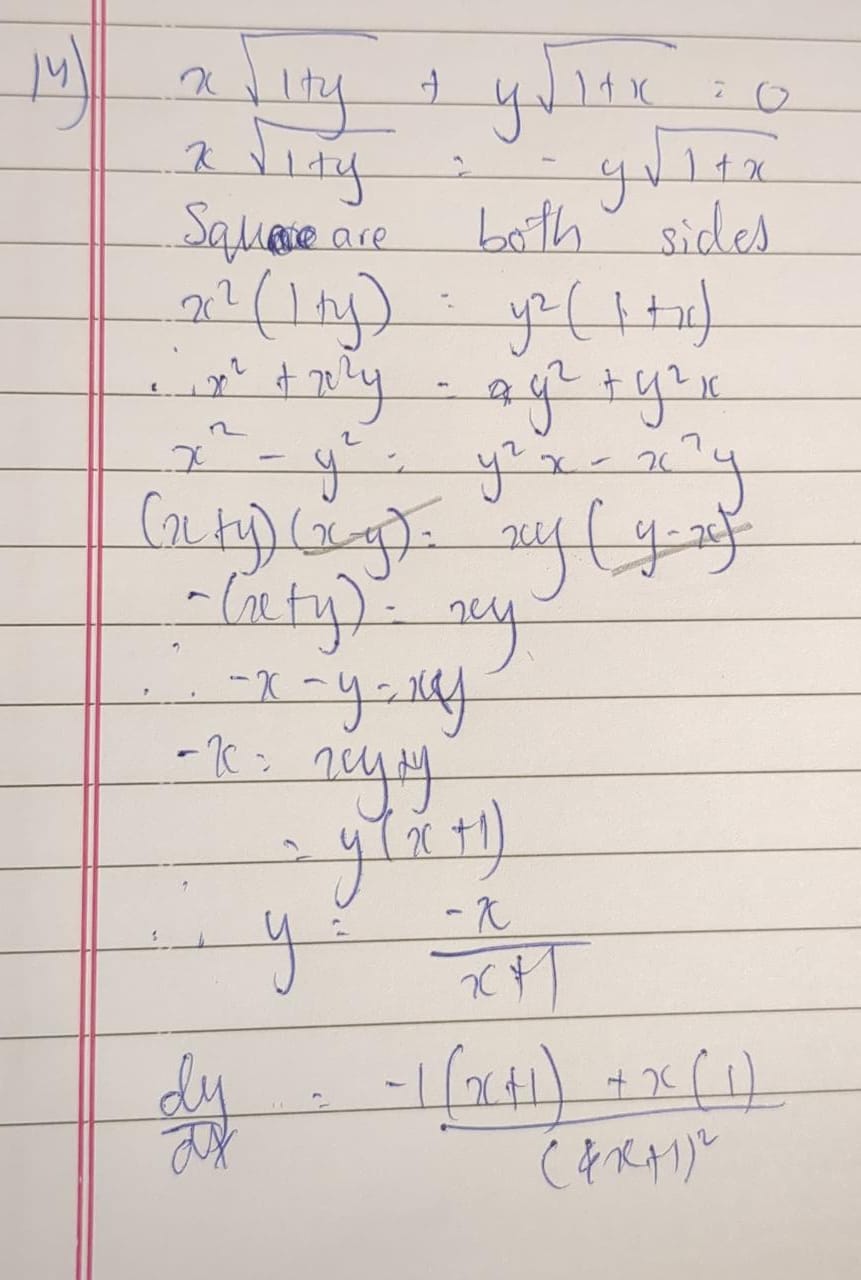 14) x √1+y + y√1+x = 0
x √1+y = - y√1+x
Square are both sides
x²(1+y) = y²(1+x)
∴ x² + x²y = y² + y²x
x² - y² = y²x - x²y
(x+y)(x-y) = xy(y-x)
-(x+y) = xy
∴ -x - y = xy
-x = xy+y
= y(x+1)
∴ y = -x/x+1
dy/dx = -1(x+1) + x(1)/(x+1)²